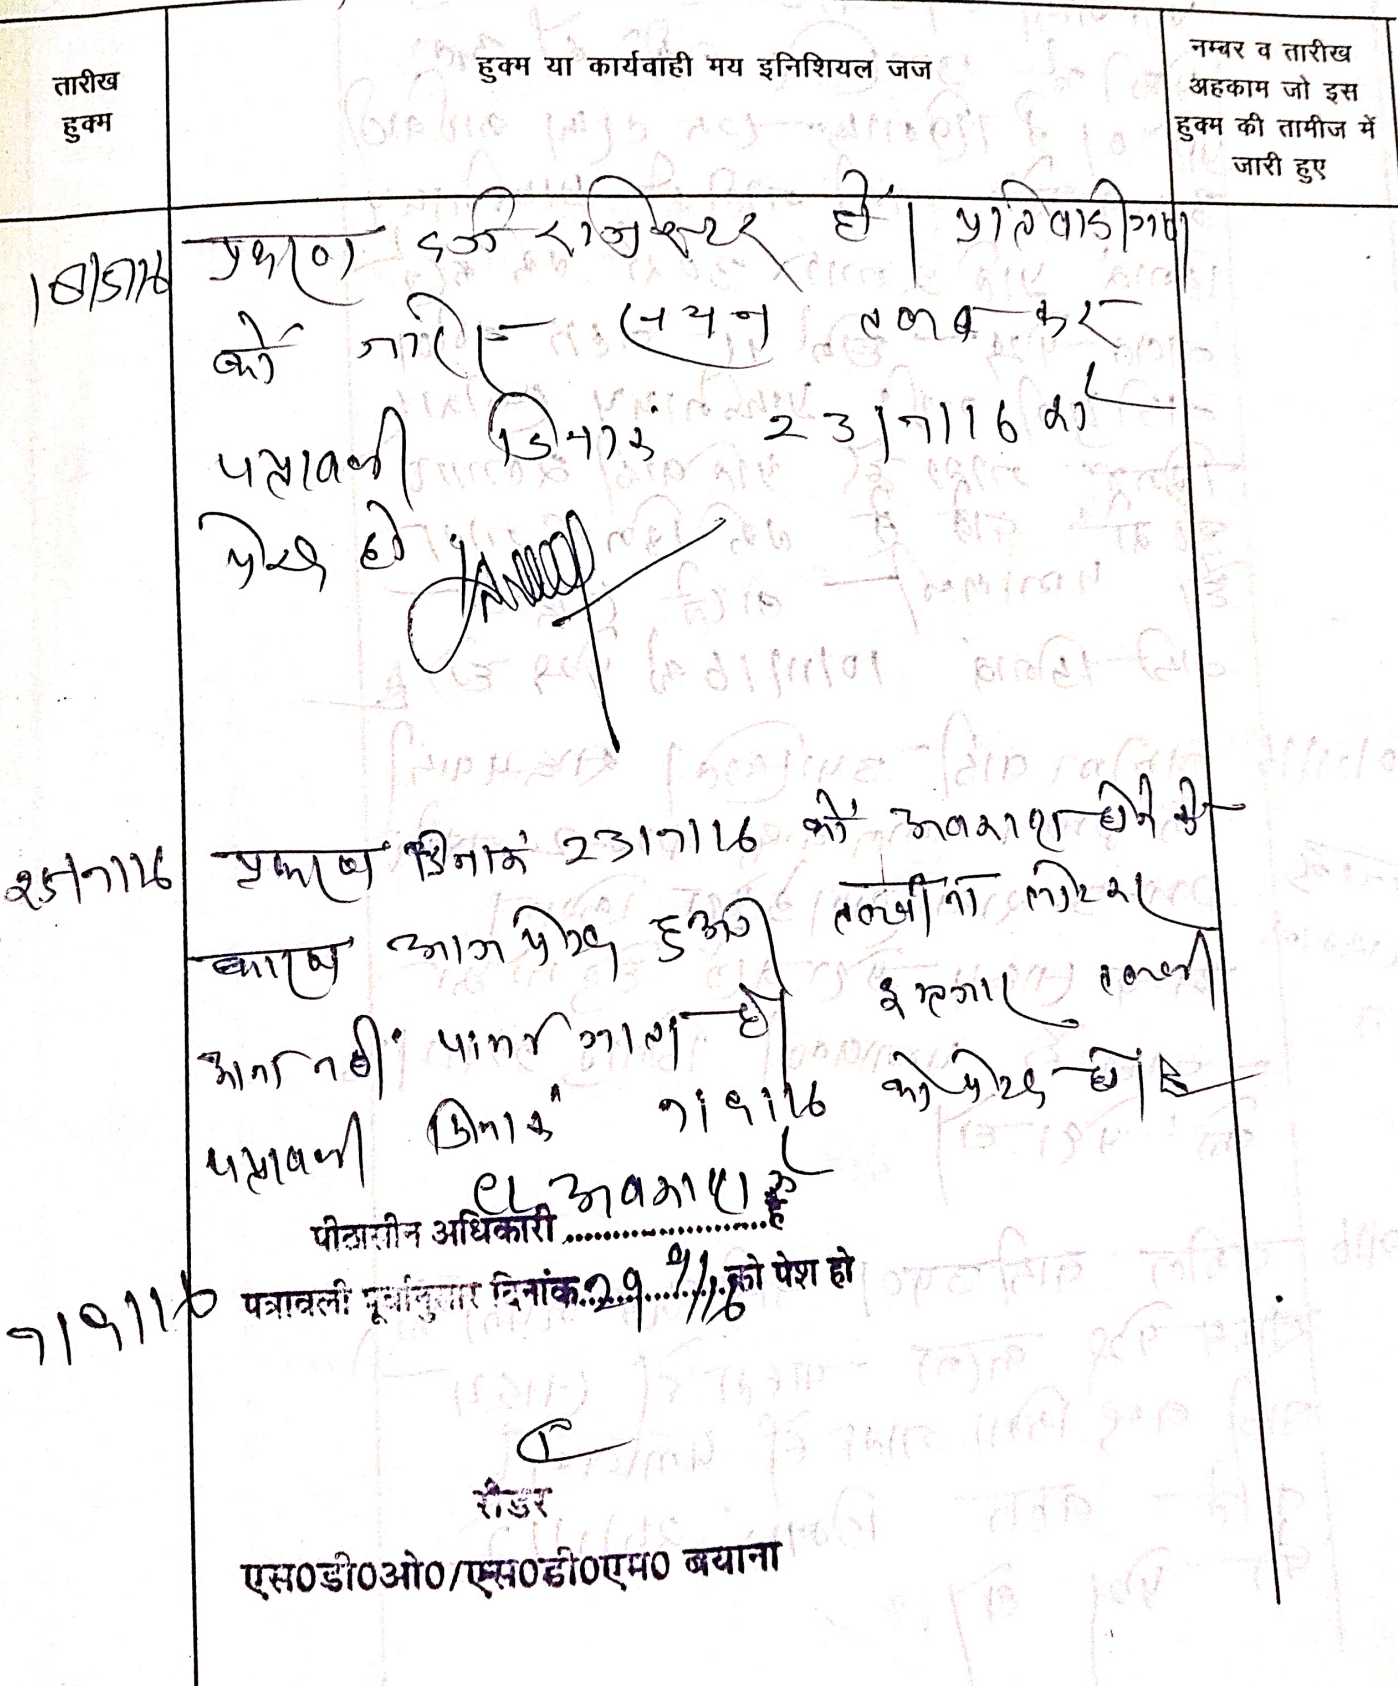 तारीख
हुक्म
हुक्म या कार्यवाही मय इनिशियल जज
नम्बर व तारीख
अहकाम जो इस
हुक्म की तामील में
जारी हुए
प्रकरण दर्ज रजिस्टर हो। प्रतिवादीगण
को जरिए समन तलब कर
पत्रावली दिनांक 23/7/16 को
पेश हो
25/7/16
प्रकरण दिनांक 23/7/16 को अवकाश होने के
कारण आज पेश हुआ तलबीना लौटकर
आना नहीं पाया जाता है। इन्तजार तलबी
पत्रावली दिनांक 7/9/16 को पेश हो।
अवकाश
पीठासीन अधिकारी .................... है
7/9/16
पत्रावली पूर्वानुसार दिनांक 29/9/16 को पेश हो
रीडर
एस0डी0ओ0/एस0डी0एम0 बयाना